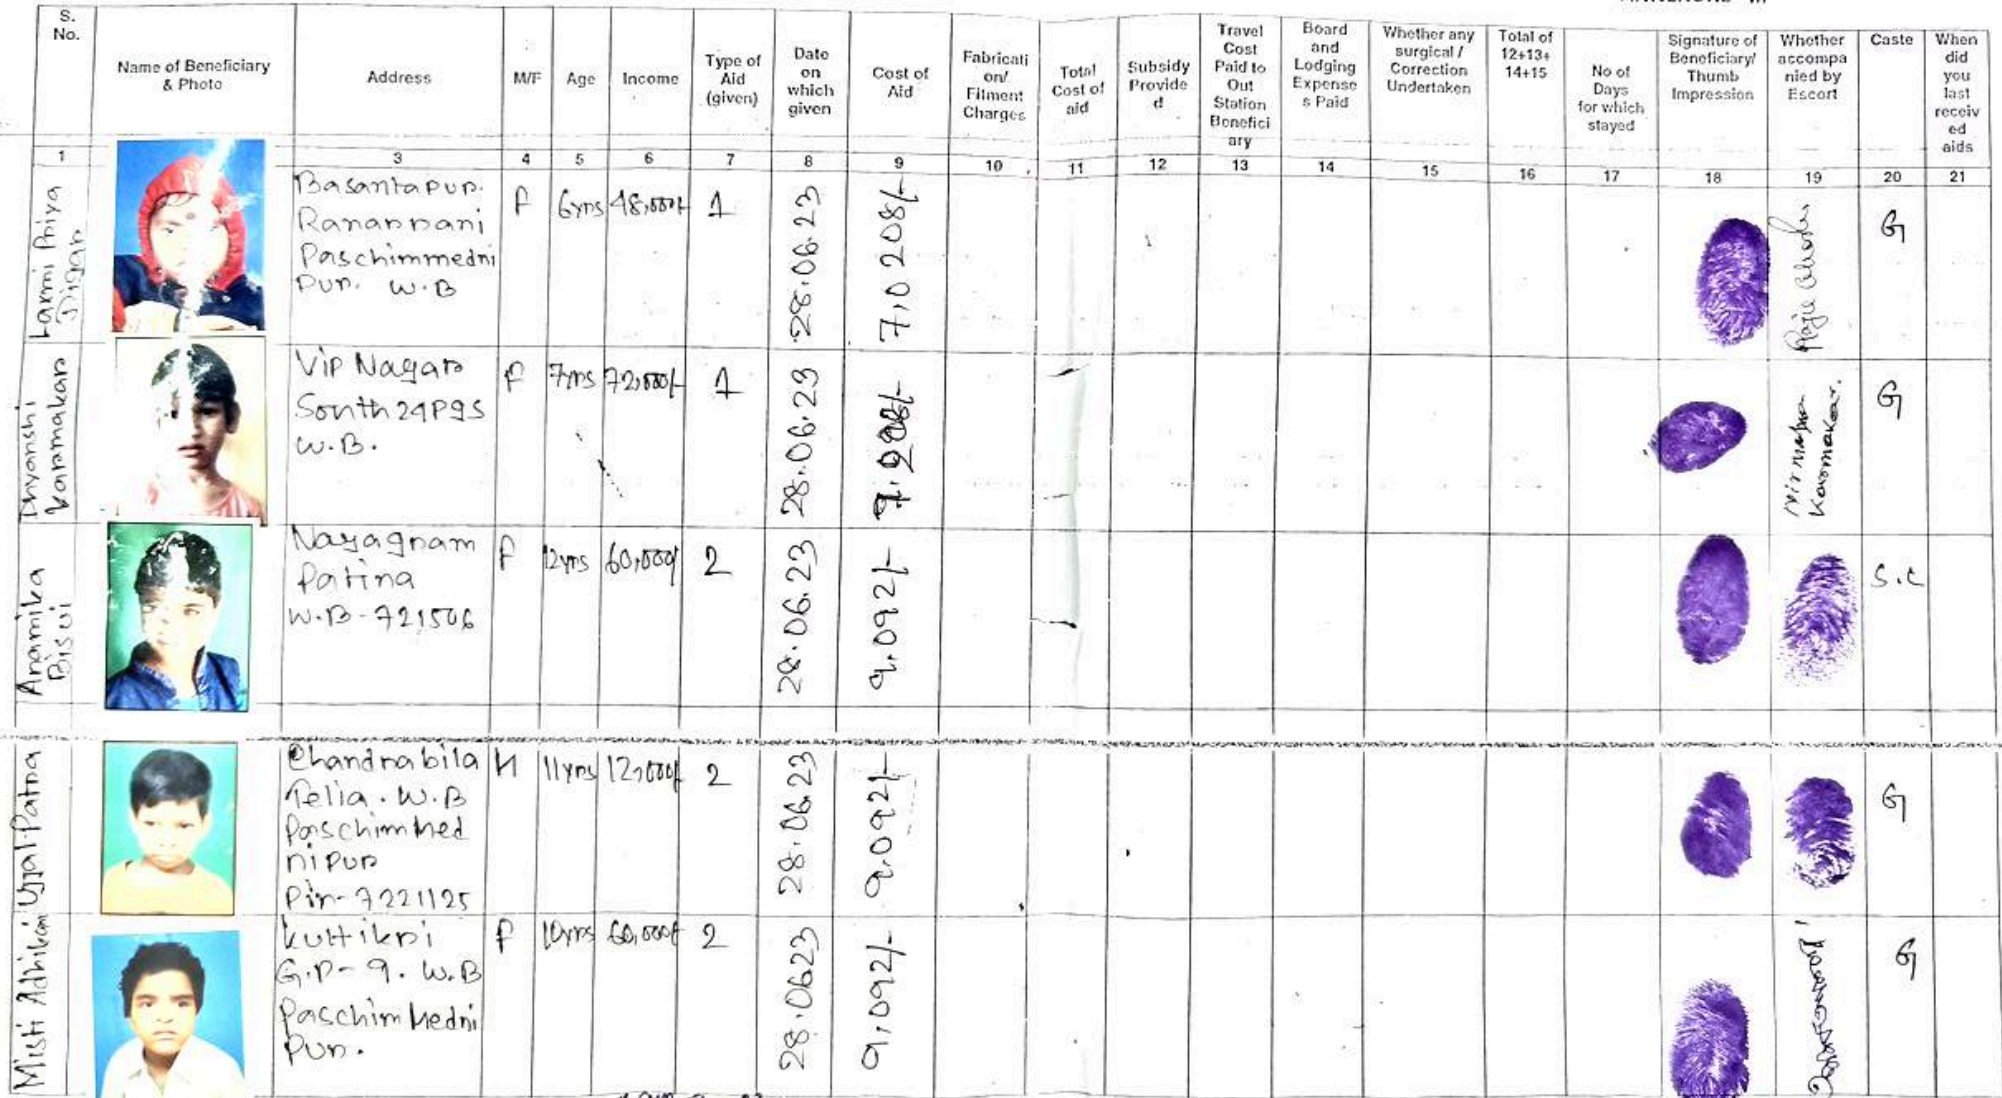 S. No.
Name of Beneficiary & Photo
Address
M/F
Age
Income
Type of Aid (given)
Date on which given
Cost of Aid
Fabricati on/ Filment Charges
Total Cost of aid
Subsidy Provide d
Travel Cost Paid to Out Station Benefici ary
Board and Lodging Expense s Paid
Whether any surgical / Correction Undertaken
Total of 12+13+ 14+15
No of Days for which stayed
Signature of Beneficiary/ Thumb Impression
Whether accompa nied by Escort
Caste
When did you last receiv ed aids
1 3 4 5 6 7 8 9 10 11 12 13 14 15 16 17 18 19 20 21
Laxmi Priya
Basantapur.
Paschimmedni
Pur. W.B
F 6yrs 48,000/- 1 28.06.23 G
Dhyanshi Karmakar
Vip Nagar
South 24Pgs
W.B.
F 7yrs 72,000/- 1 28.06.23
Nirmalya Karmakar.
G
Anamika Bisui
Nayagram
Patina
W.B-721506
F 12yrs 60,000/ 2 28.06.23 9,092/- S.C
Ujjal Patra
Chandrabila
Telia. W.B
Paschim Med
nipur
Pin-7221125
M 11yrs 2 28.06.23 9,092/- G
Misti Adhikari
Kultikri
G.P-9. W.B
Paschim Medni
Pur.
F 10yrs 60,000/ 2 28.0623 9,092/- G